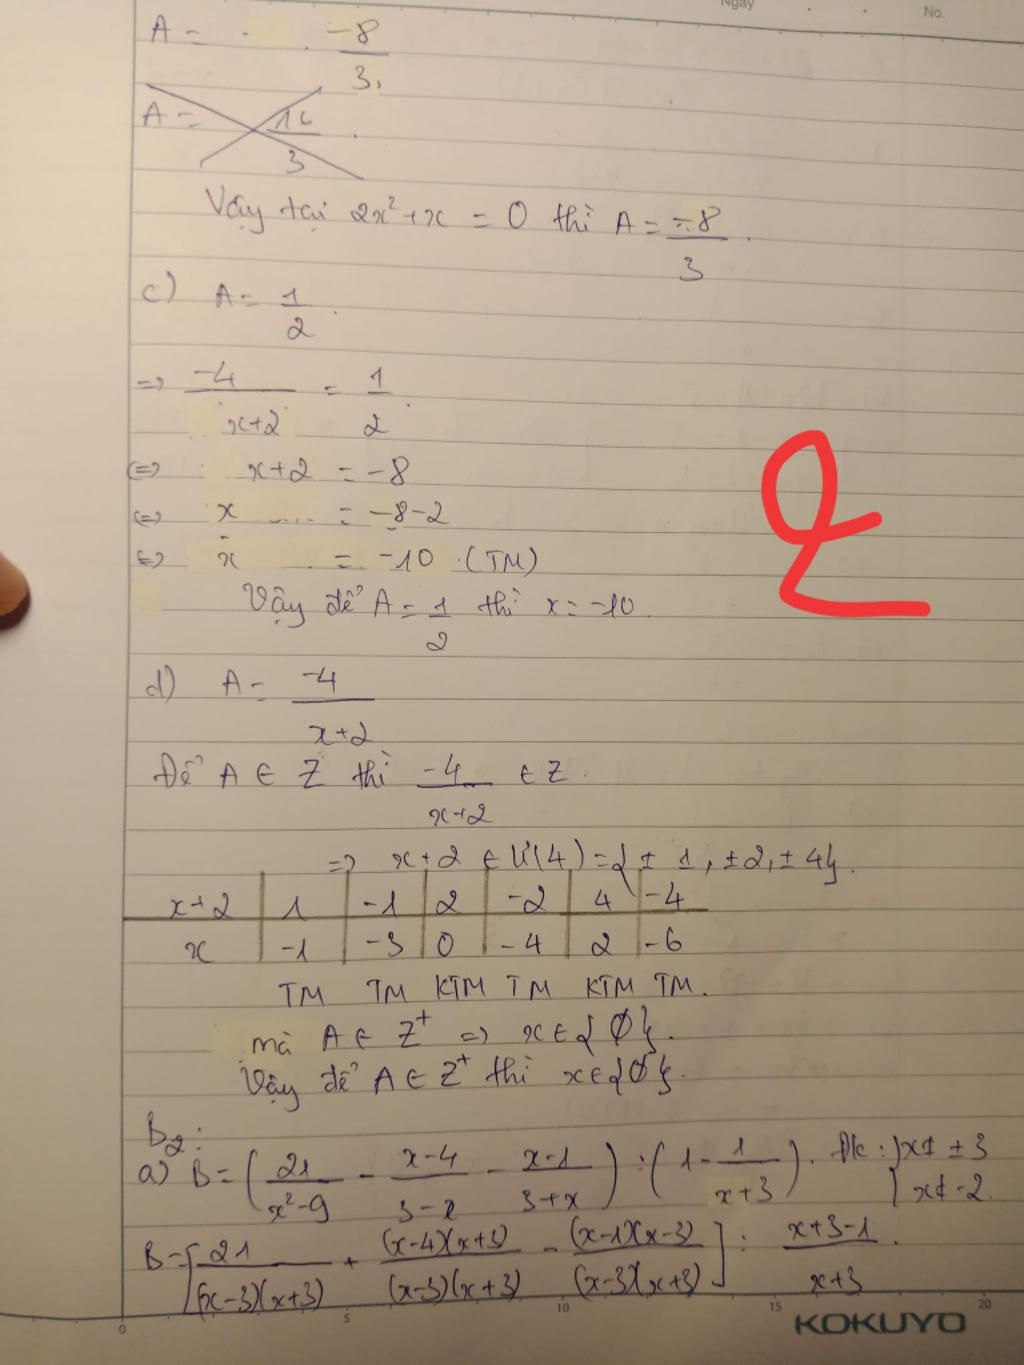 Ngày No.
A = -8/3
A = 16/3
Vậy tại 2x²+x = 0 thì A = -8/3.
c) A = 1/2.
=> -4/(x+2) = 1/2.
(=) x+2 = -8
(=) x = -8-2
(=) x = -10 (TM)
Vậy để A = 1/2 thì x = -10.
2
d) A = -4/(x+2)
Để A ∈ Z thì -4/(x+2) ∈ Z.
=> x+2 ∈ Ư(4) = {± 1, ±2, ± 4}.
x+2 | 1 | -1 | 2 | -2 | 4 | -4
x | -1 | -3 | 0 | -4 | 2 | -6
TM TM KTM TM KTM TM.
mà A ∈ Z⁺ => x ∈ {Ø}.
Vậy để A ∈ Z⁺ thì x ∈ {Ø}.
B2:
a) B = (21/(x²-9) - (x-4)/(3-x) - (x-1)/(3+x)) : (1 - 1/(x+3)). Đk: { x ≠ ±3 x ≠ -2
B = [21/((x-3)(x+3)) + (x-4)(x+3)/((x-3)(x+3)) - (x-1)(x-3)/((x-3)(x+3))] : (x+3-1)/(x+3).
0 5 10 15 20
KOKUYO